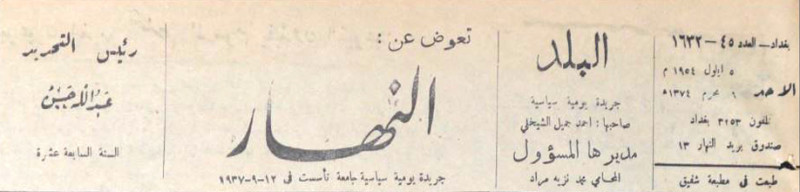 بغداد – العدد ٤٥ – ١٦٣٢
الاحد
٥ ايلول ١٩٥٤ م
٦ محرم ١٣٧٤ ه
تلفون ٣٢٥٣ بغداد
صندوق بريد النهار ١٣
طبعت فى مطبعة شفيق
البلد
جريدة يومية سياسية
صاحبها : احمد جميل الشيخلي
مديرها المسؤول
المحامي محمد نزيه مراد
تعوض عن :
النهار
جريدة يومية سياسية جامعة تأسست فى ١٢–٩–١٩٣٧
رئيس التحرير
عبدالله حسن
السنة السابعة عشرة